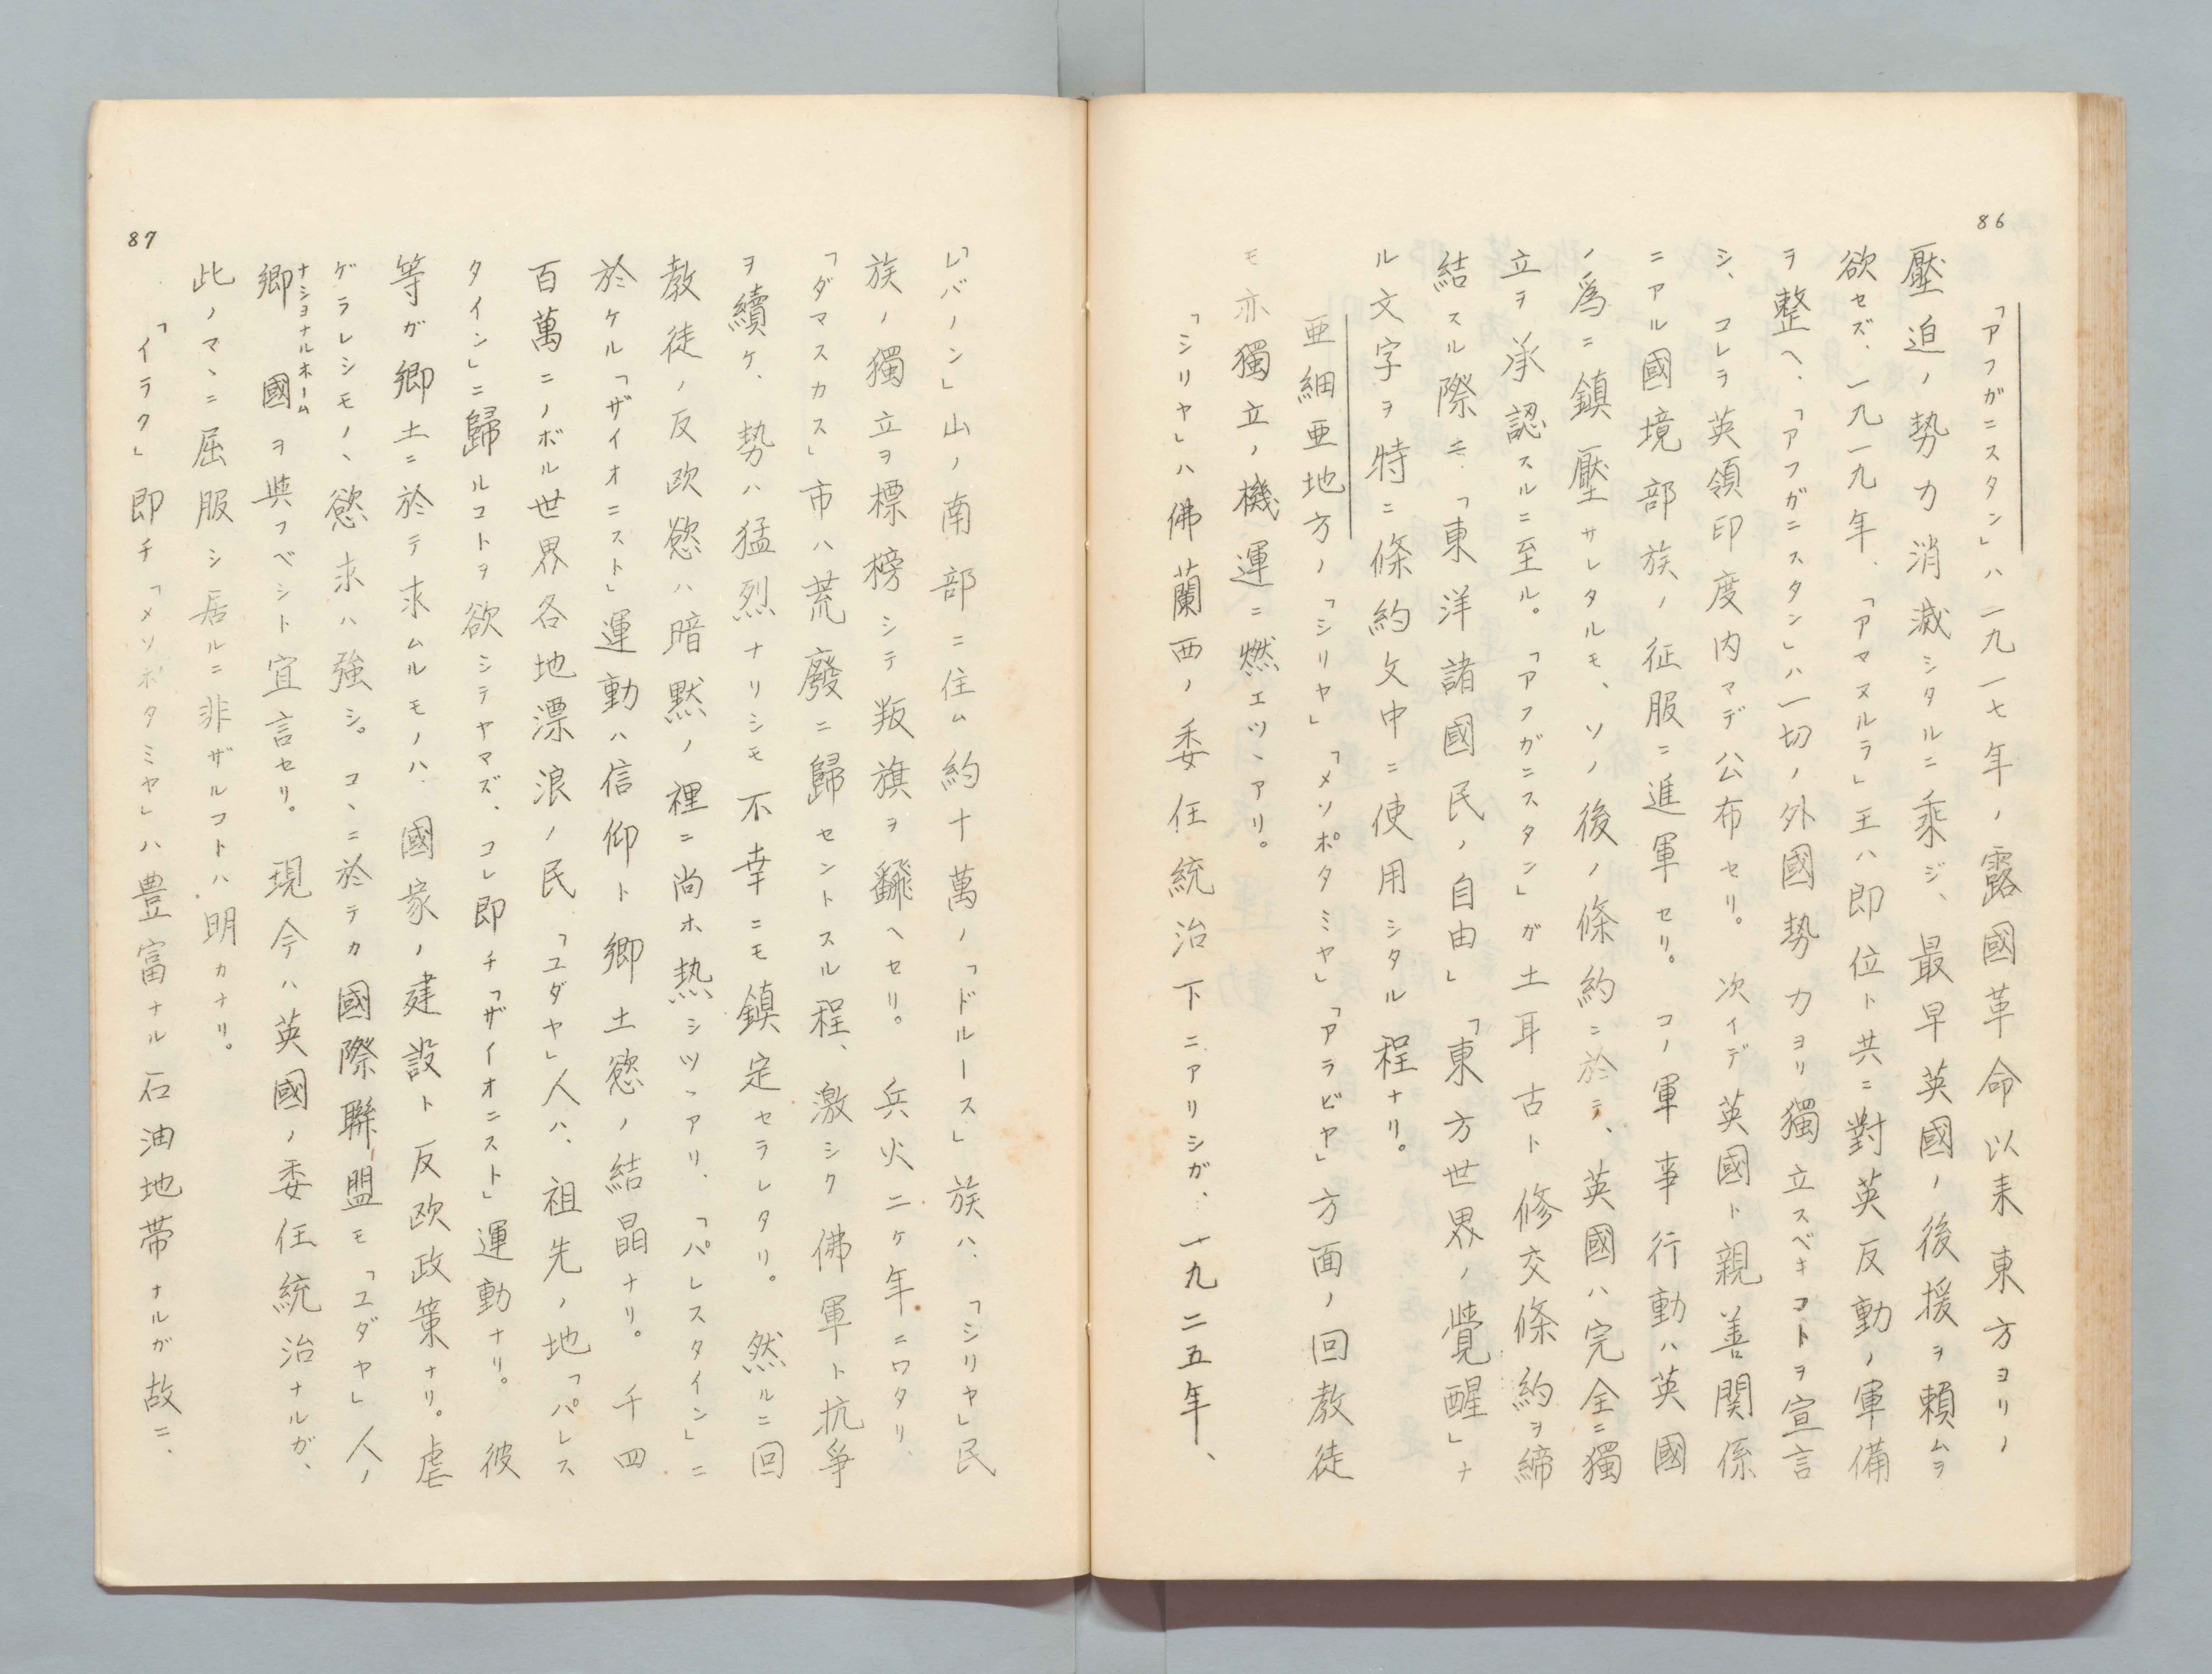 86
「アフガニスタン」ハ一九一七年ノ露國革命以来東方ヨリノ
壓迫ノ勢力消滅シタルニ乘ジ、最早英國ノ後援ヲ頼ムヲ
欲セズ、一九一九年、「アマヌルラ」王ハ即位ト共ニ對英反動ノ軍備
ヲ整ヘ、「アフガニスタン」ハ一切ノ外國勢力ヨリ獨立スベキコトヲ宣言
シ、コレヲ英領印度内マデ公布セリ。次イデ英國ト親善関係
ニアル國境部族ノ征服ニ進軍セリ。コノ軍事行動ハ英國
ノ爲ニ鎮壓サレタルモ、ソノ後ノ條約ニ於テ、英國ハ完全ニ獨
立ヲ承認スルニ至ル。「アフガニスタン」ガ土耳古ト修交條約ヲ締
結スル際ニ、「東洋諸國民ノ自由」「東方世界ノ覺醒」ナ
ル文字ヲ特ニ條約文中ニ使用シタル程ナリ。
亜細亜地方ノ「シリヤ」「メソポタミヤ」「アラビヤ」方面ノ回教徒
モ亦獨立ノ機運ニ燃エツヽアリ。
「シリヤ」ハ佛蘭西ノ委任統治下ニアリシガ、一九二五年、
「レバノン」山ノ南部ニ住ム約十萬ノ「ドルース」族ハ、「シリヤ」民
族ノ獨立ヲ標榜シテ叛旗ヲ飜ヘセリ。兵火二ケ年ニワタリ、
「ダマスカス」市ハ荒廢ニ歸セントスル程、激シク佛軍ト抗爭
ヲ續ケ、勢ハ猛烈ナリシモ不幸ニモ鎮定セラレタリ。然ルニ回
教徒ノ反欧慾ハ暗黙ノ裡ニ尚ホ熱シツヽアリ、「パレスタイン」ニ
於ケル「ザイオニスト」運動ハ信仰ト郷土慾ノ結晶ナリ。千四
百萬ニノボル世界各地漂浪ノ民「ユダヤ」人ハ、祖先ノ地「パレス
タイン」ニ歸ルコトヲ欲シテヤマズ、コレ即チ「ザイオニスト」運動ナリ。彼
等ガ郷土ニ於テ求ムルモノハ、國家ノ建設ト反欧政策ナリ。虐
ゲラレシモノヽ慾求ハ強シ。コヽニ於テカ國際聯盟モ「ユダヤ」人ノ
ナショナルホーム
郷國ヲ與フベシト宣言セリ。現今ハ英國ノ委任統治ナルガ、
此ノマヽニ屈服シ居ルニ非ザルコトハ明カナリ。
「イラク」即チ「メソポタミヤ」ハ豊富ナル石油地帯ナルガ故ニ、
87